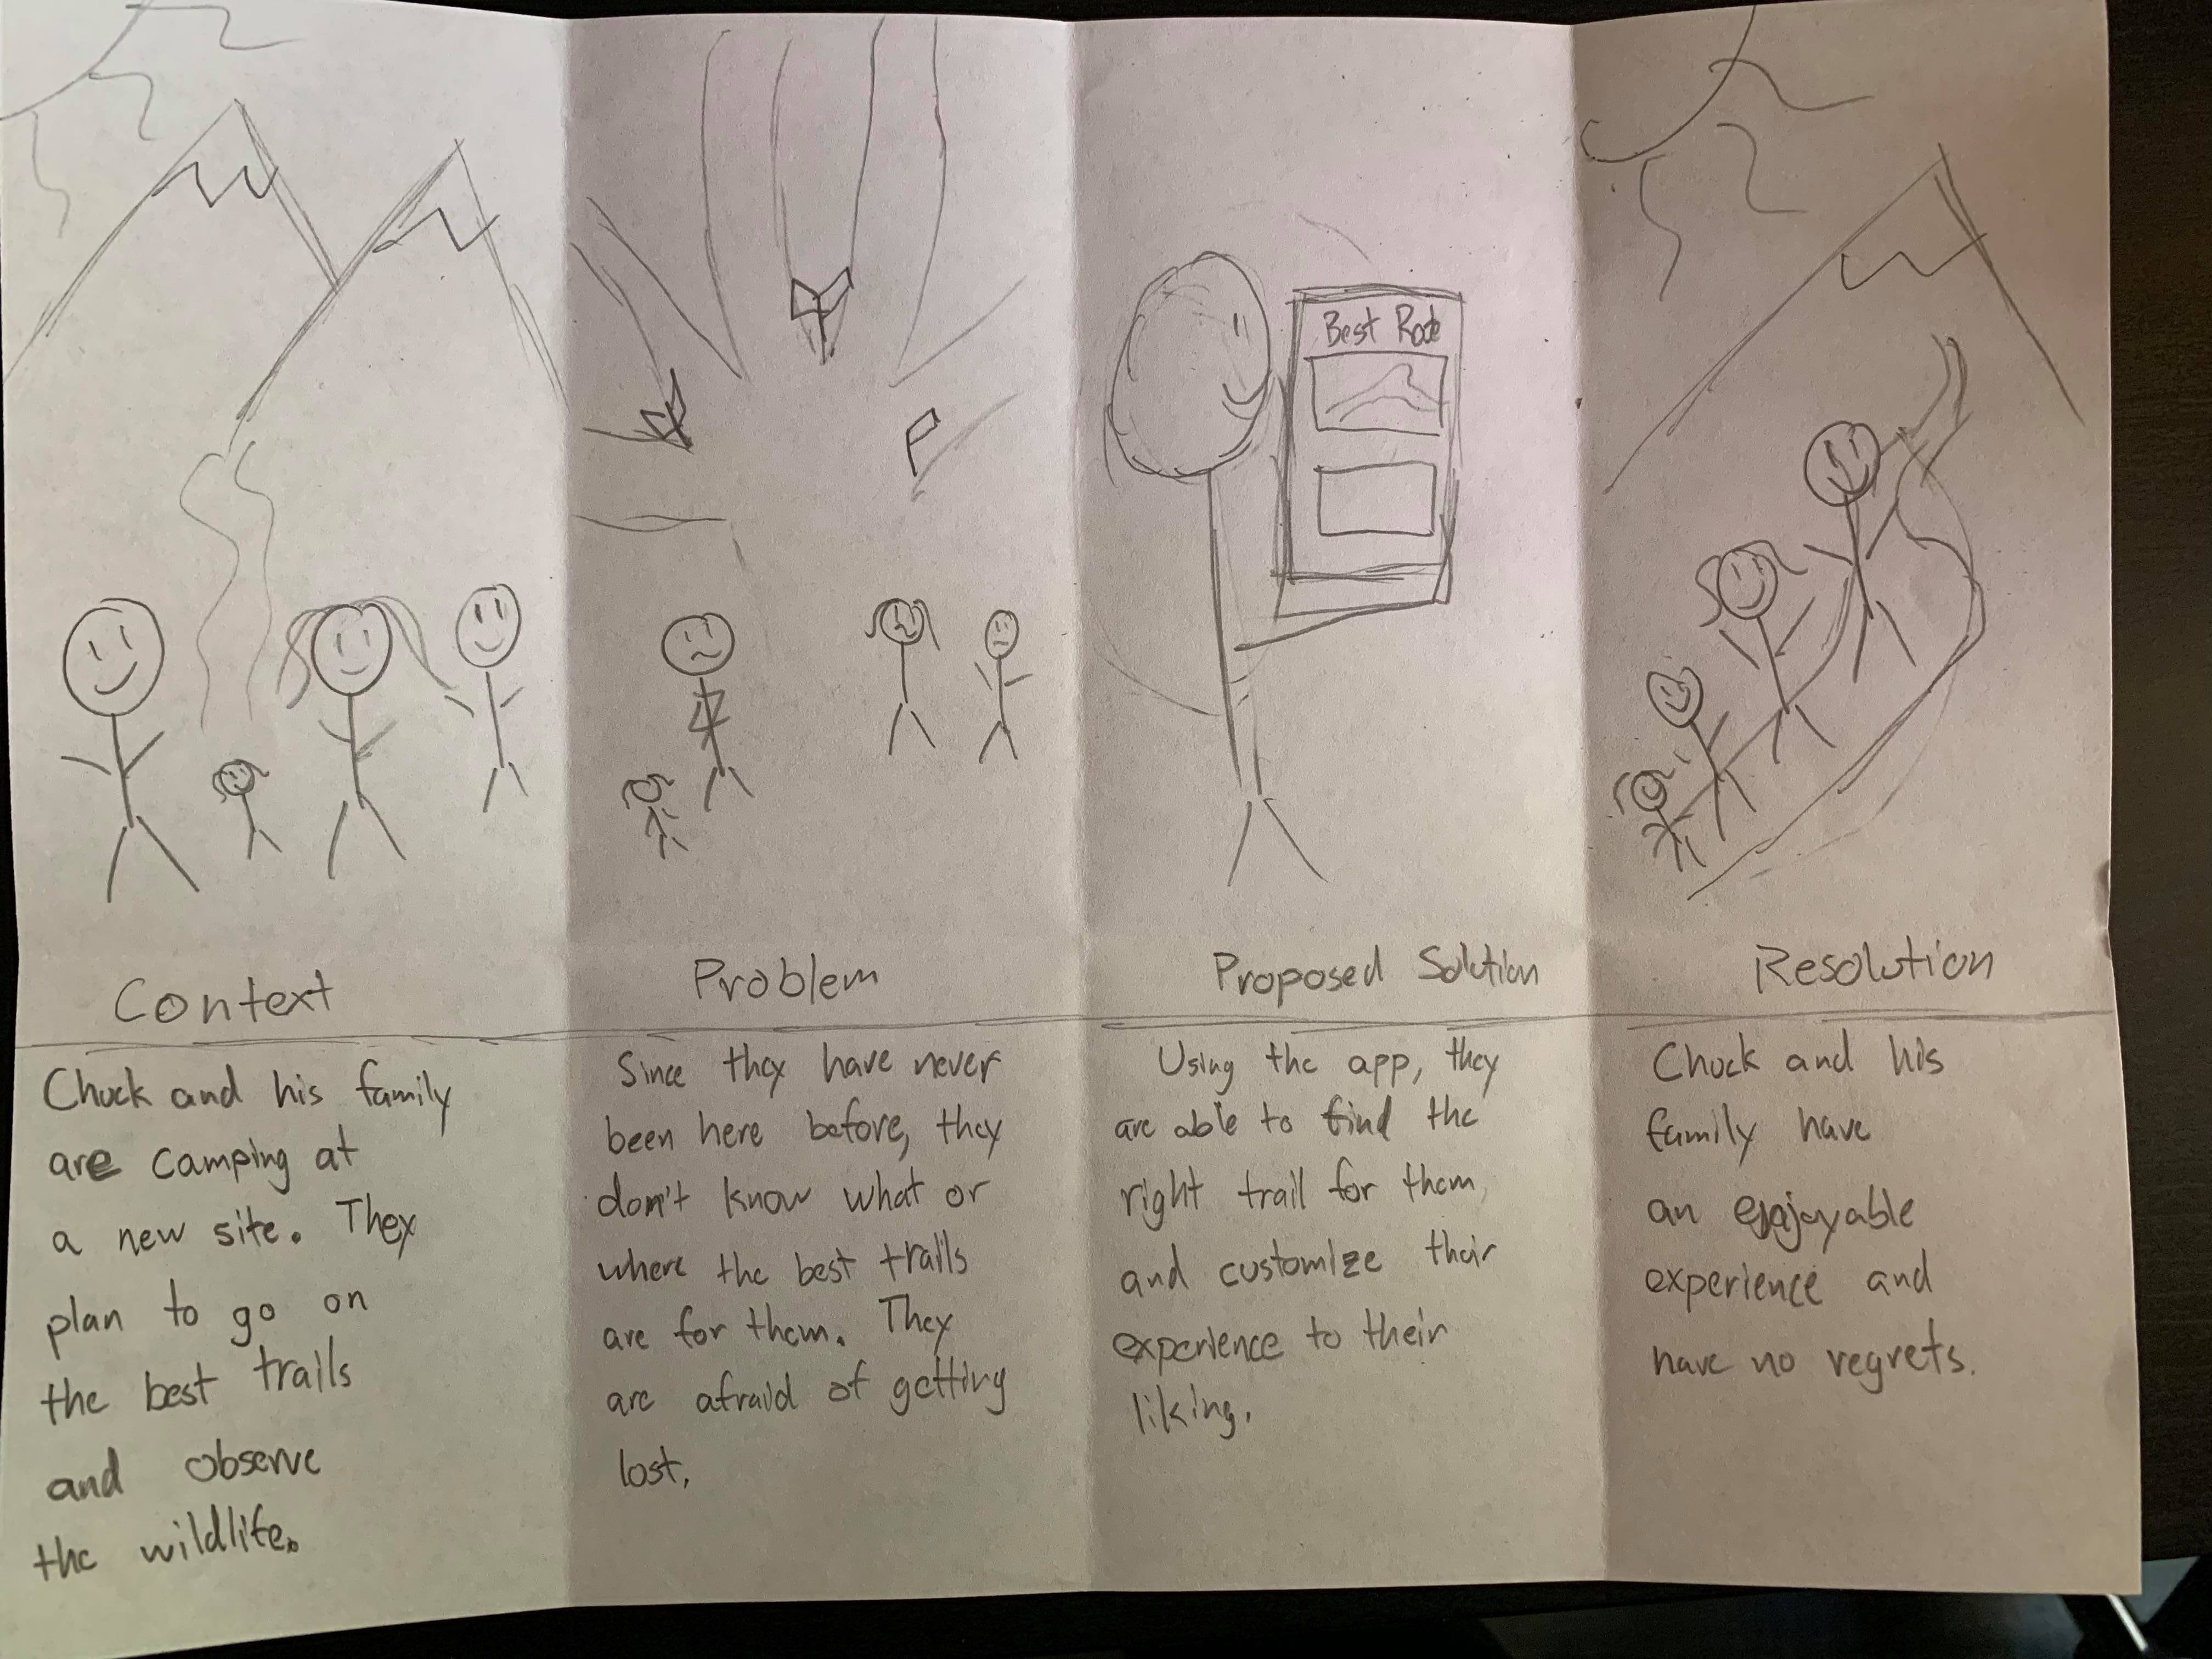 Best Rote
Context
Chuck and his family
are camping at
a new site. They
plan to go on
the best trails
and observe
the wildlife.
Problem
Since they have never
been here before, they
don't know what or
where the best trails
are for them. They
are afraid of getting
lost.
Proposed Solution
Using the app, they
are able to find the
right trail for them,
and customize their
experience to their
liking.
Resolution
Chuck and his
family have
an enjoyable
experience and
have no regrets.